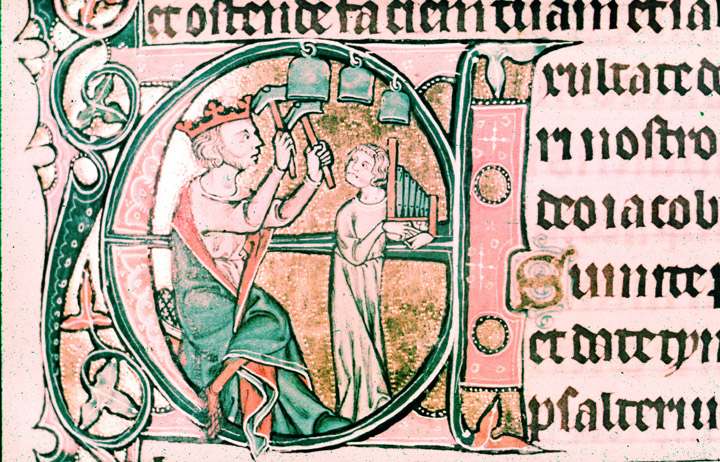 et ostende faciem tuam et sa
Exultate d
ri nostro
deo iacob
Sumite p
et date tym
psalteriu